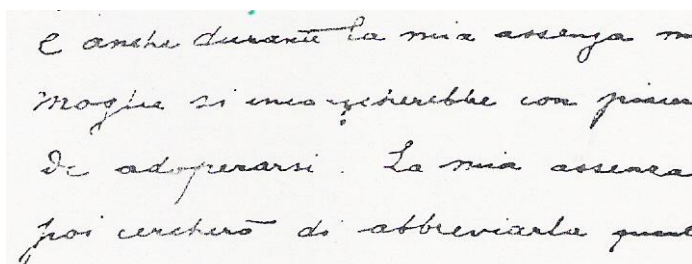 e anche durante la mia assenza m
moglie si incaricherebbe con piace
di adoperarsi. La mia assenza
poi cercherò di abbreviarla quant